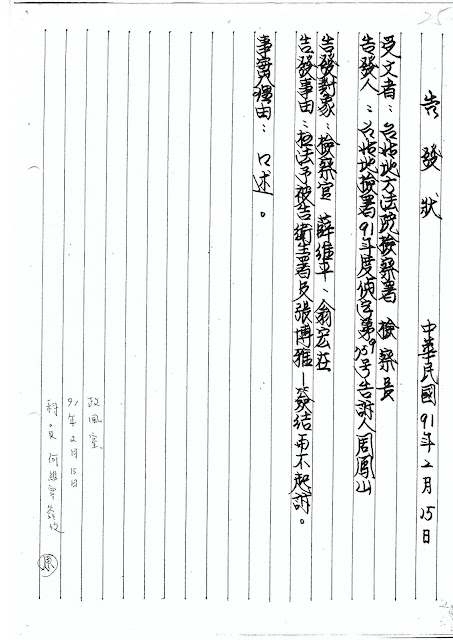 25
告發狀　中華民國91年2月15日
受文者：台北地方法院檢察署 檢察長
告發人：台北地檢署91年度偵字第 號告訴人周鳳山
告發對象：檢察官 薛維平、翁宏在
告發事由：枉法予被告衛生署及張博雅 發結而不起訴。
事實及理由：口述。
政風室
91年2月15日
科員 何